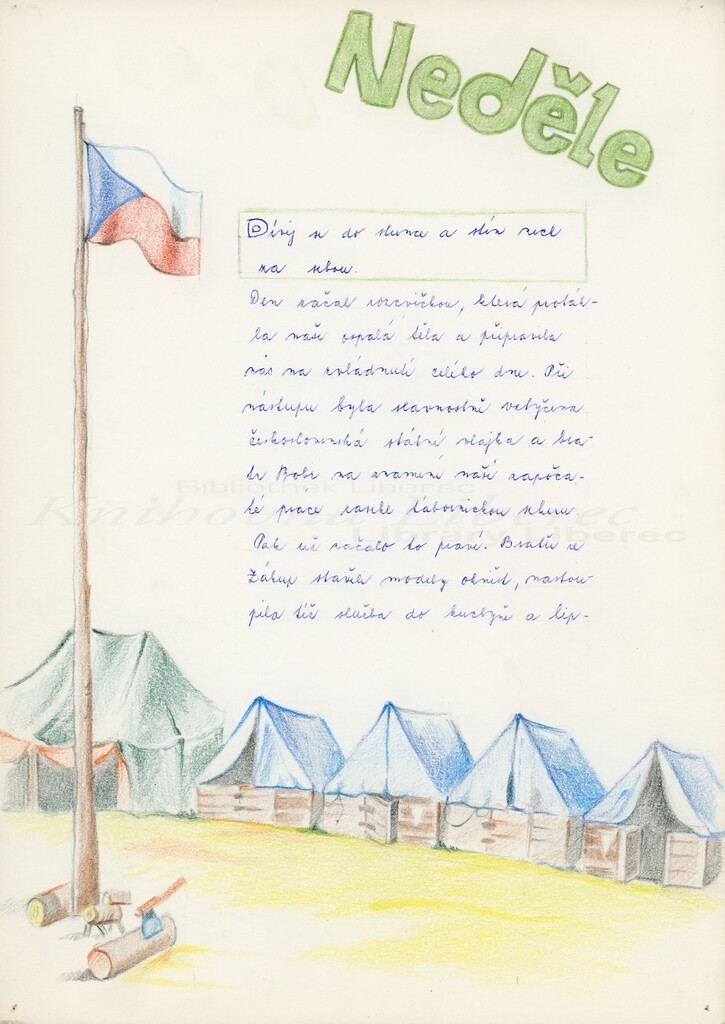 Neděle
Dívej se do slunce a stín nech
za sebou.
Den začal rozcvičkou, která protáh-
la naše ospalá těla a připravila
nás na zvládnutí celého dne. Při
nástupu byla slavnostně vztyčena
československá státní vlajka a bra-
tr Bobr na znamení naší započa-
té práce zasekl tábornickou sekeru
Pak už začalo to pravé. Bratři ze
Zákup stavěli modely ohnišť, nastou-
pila též služba do kuchyně a lip-
Bibliothek Liberec
Knihovna Liberec
Library Liberec